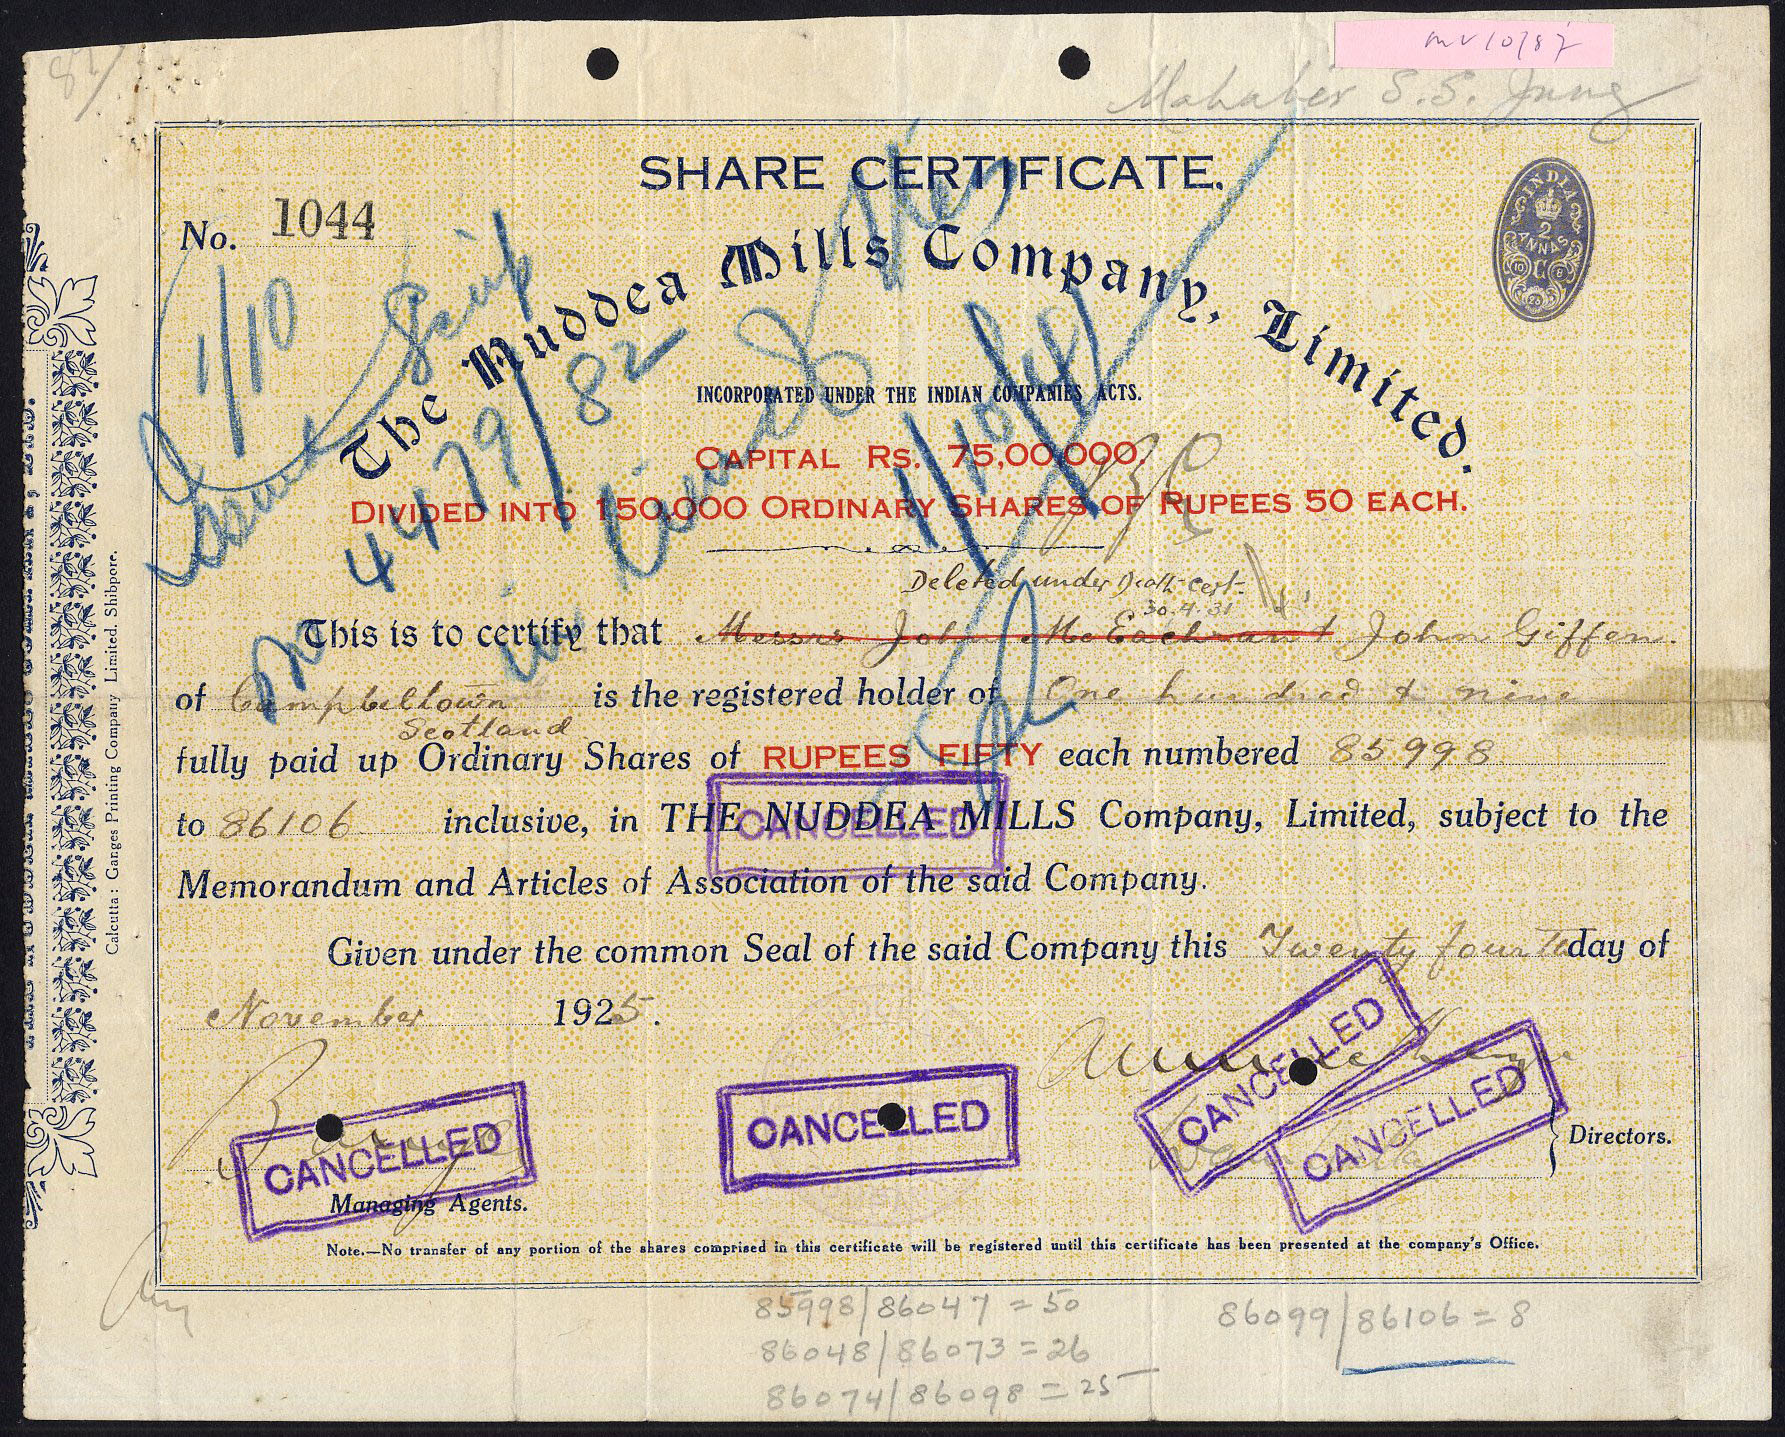 mv10/87
Mahabir S. S. Jung
SHARE CERTIFICATE.
No. 1044
INDIA
2
ANNAS
The Nuddea Mills Company, Limited.
1/10
4479/82
1/10/41
INCORPORATED UNDER THE INDIAN COMPANIES ACTS.
CAPITAL RS. 75,00,000,
DIVIDED INTO 150,000 ORDINARY SHARES OF RUPEES 50 EACH.
Deleted under Death Cert.
30.4.31
This is to certify that Messrs John McEachran & John Giffen.
of Campbeltown is the registered holder of One hundred & nine
Scotland
fully paid up Ordinary Shares of RUPEES FIFTY each numbered 85998
to 86106 inclusive, in THE NUDDEA MILLS Company, Limited, subject to the
CANCELLED
Memorandum and Articles of Association of the said Company.
Given under the common Seal of the said Company this Twenty fourth day of
November 1925.
CANCELLED
CANCELLED
CANCELLED
CANCELLED
Directors.
Managing Agents.
Note.—No transfer of any portion of the shares comprised in this certificate will be registered until this certificate has been presented at the company's Office.
85998/86047 = 50
86048/86073 = 26
86074/86098 = 25
86099/86106 = 8
Calcutta: Ganges Printing Company Limited. Shibpore.